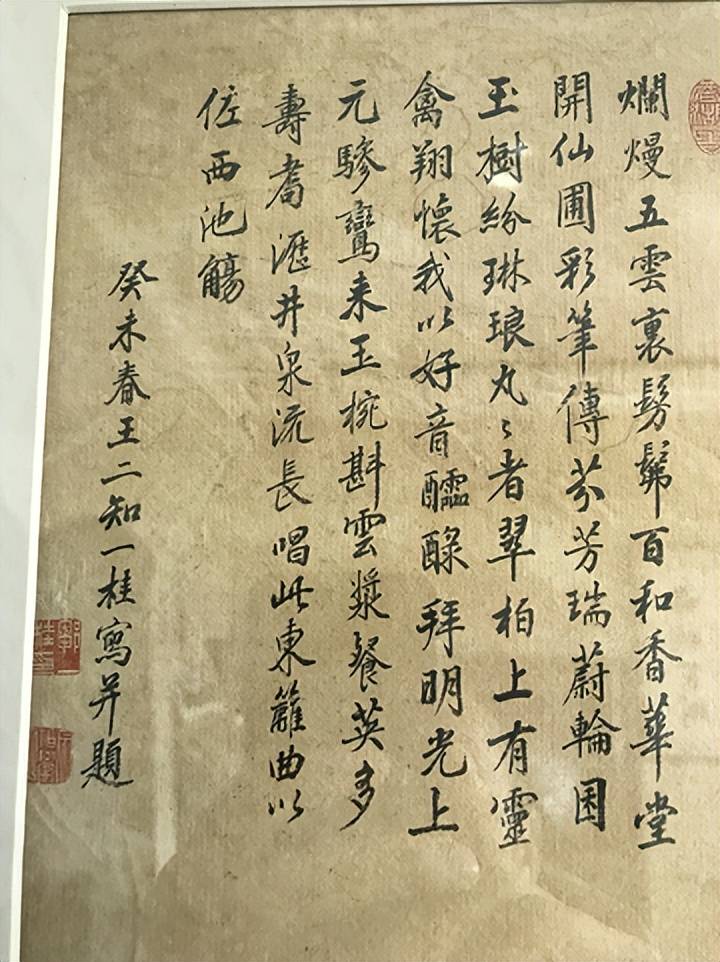 爛熳五雲裏髣髴百和香華堂
開仙圃彩筆傳芬芳瑞蔚輪囷
玉樹紛琳琅丸〻者翠柏上有靈
禽翔懷我以好音醽醁拜明光上
元驂鸞来玉椀斟雲漿餐英多
壽耈瀝井泉流長唱此東籬曲以
佐西池觴
癸未春王二知一桂寫并題